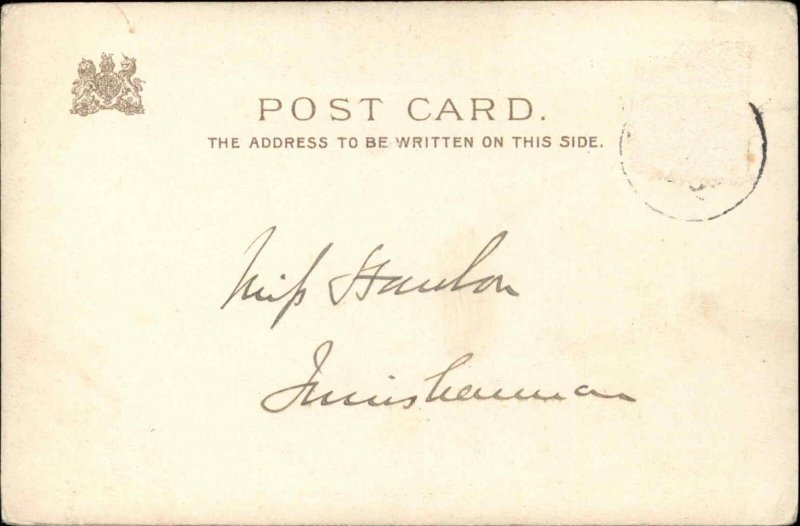 POST CARD.
THE ADDRESS TO BE WRITTEN ON THIS SIDE.
Miss Hanlon
Innishannon